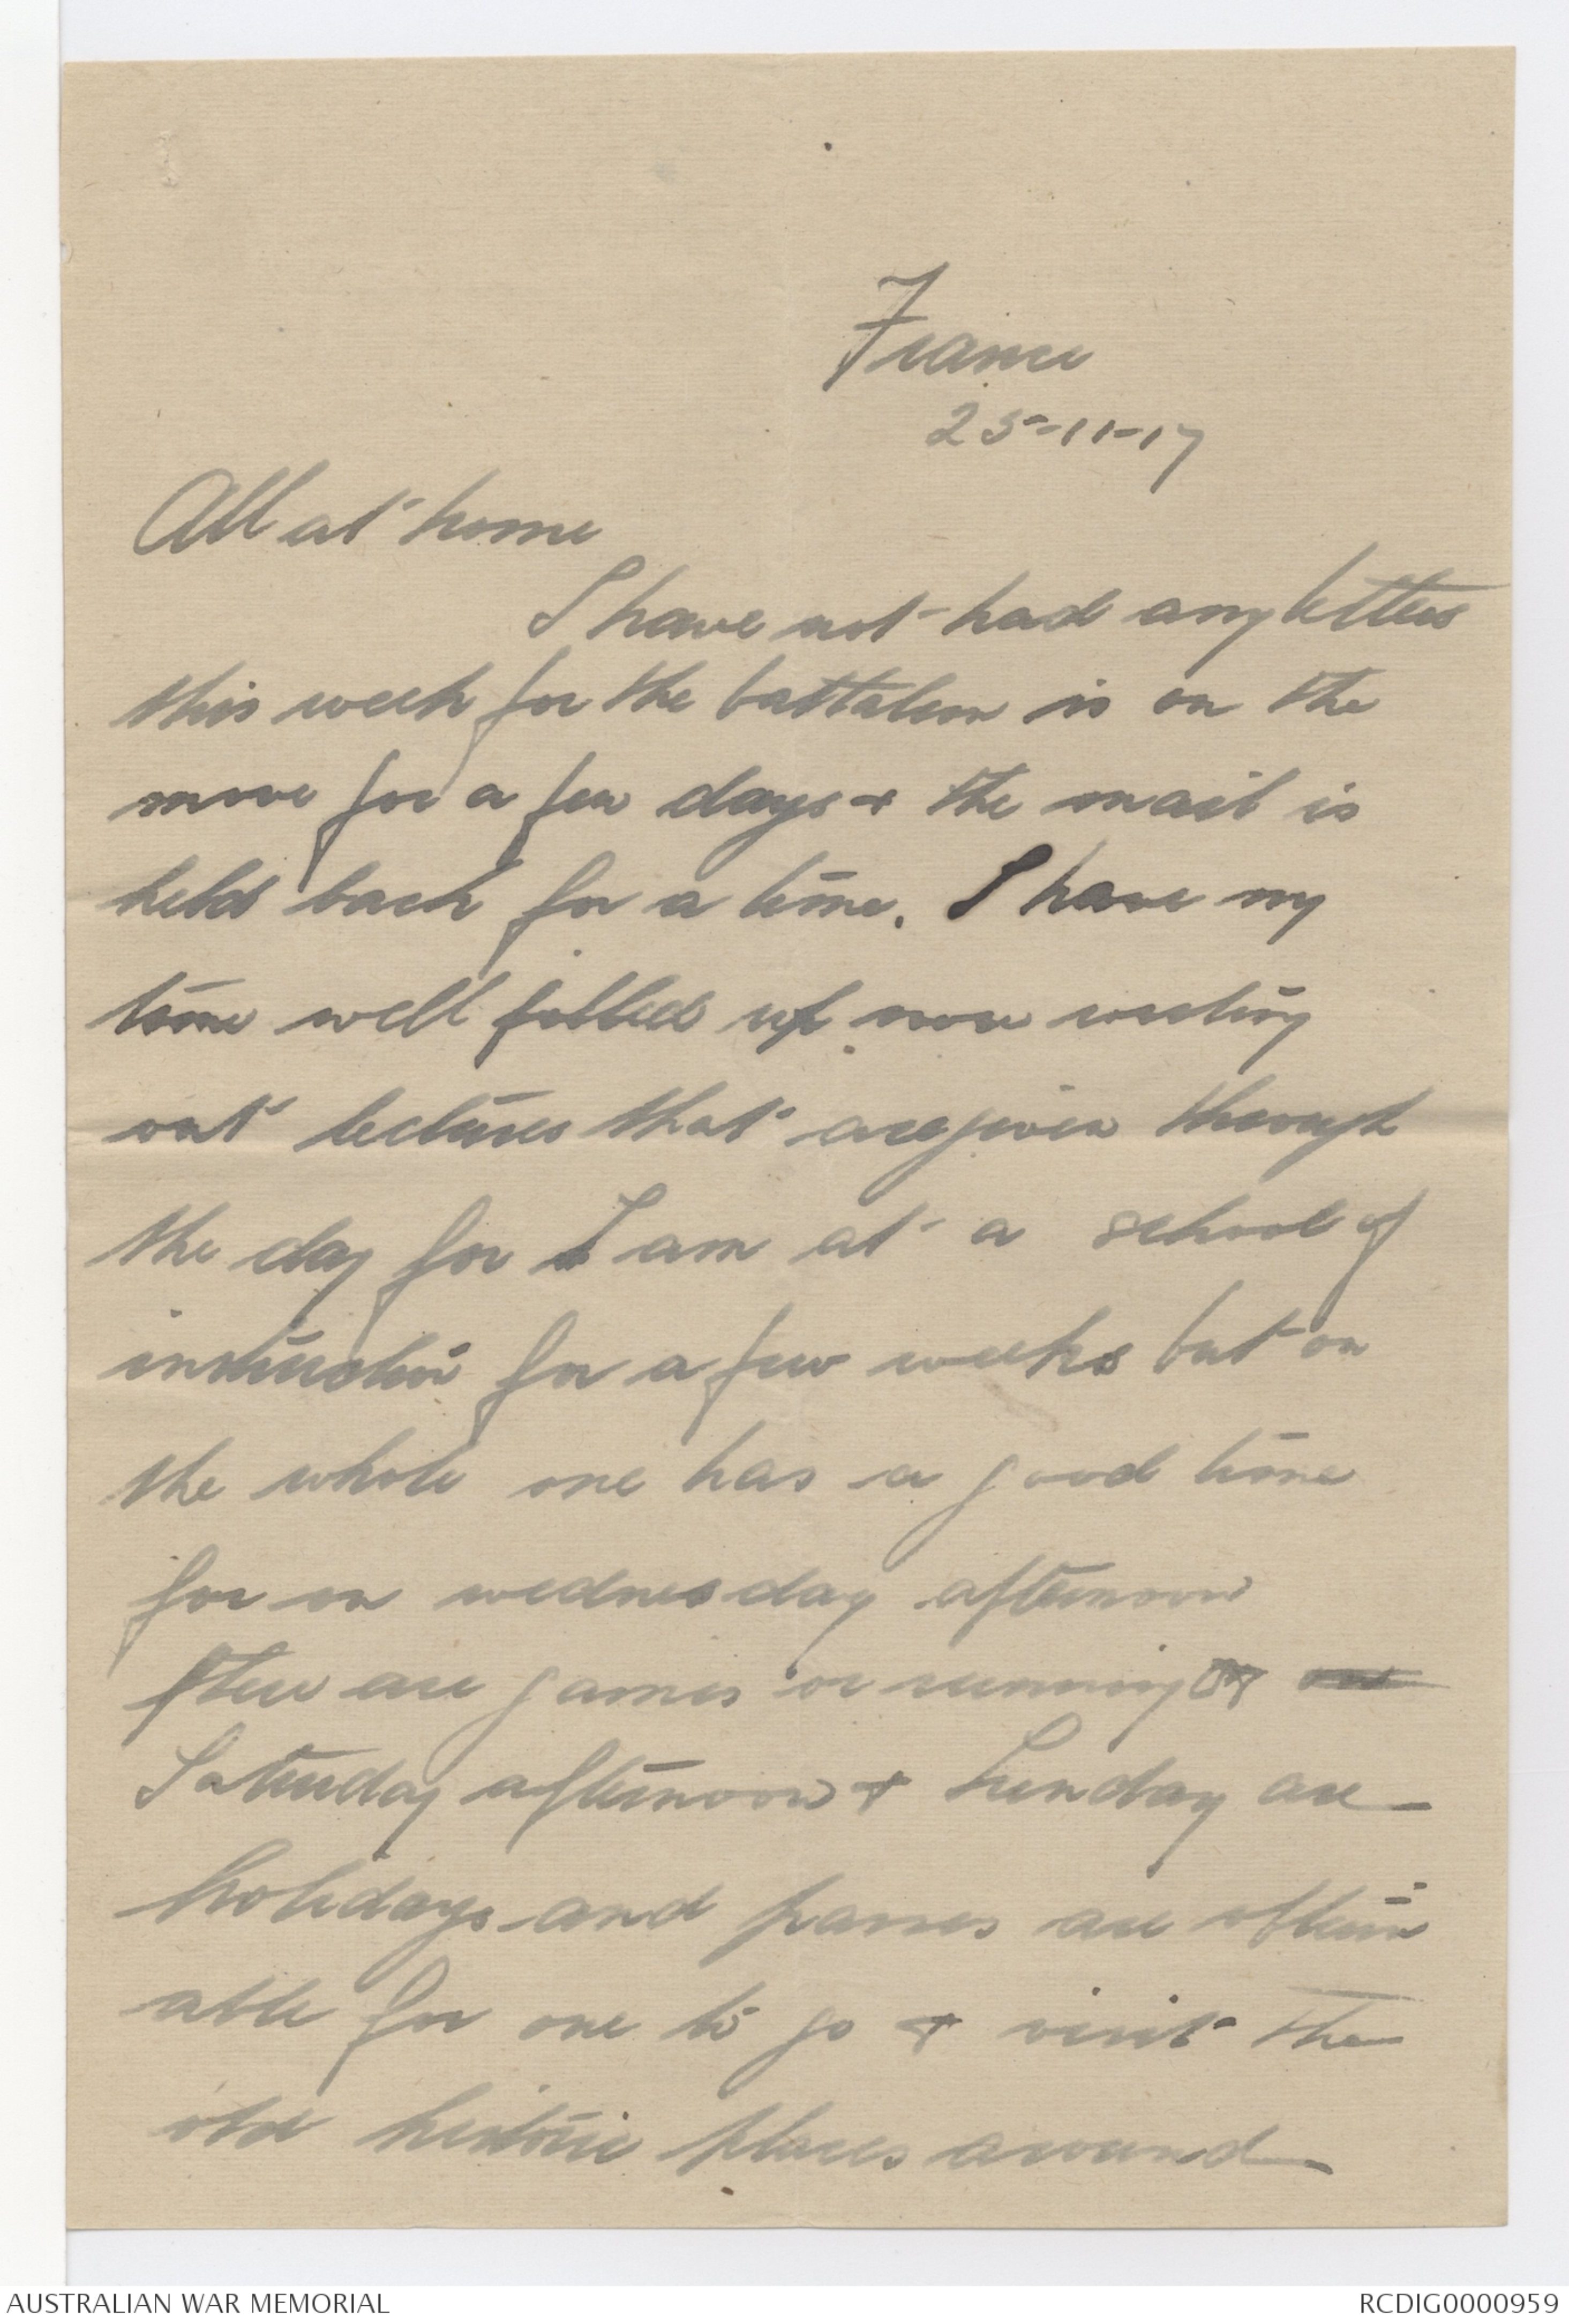 France
25-11-17
All at home
I have not had any letters
this week for the battalion is on the
move for a few days + the mail is
held back for a time. I have my
time well filled up now writing
out lectures that are given through
the day for I am at a school of
instruction for a few weeks but on
the whole one has a good time
for on wednesday afternoon
there are games or running +
Saturday afternoon + Sunday are
holidays and passes are obtain
able for one to go + visit the
old historic places around
AUSTRALIAN WAR MEMORIAL
RCDIG0000959